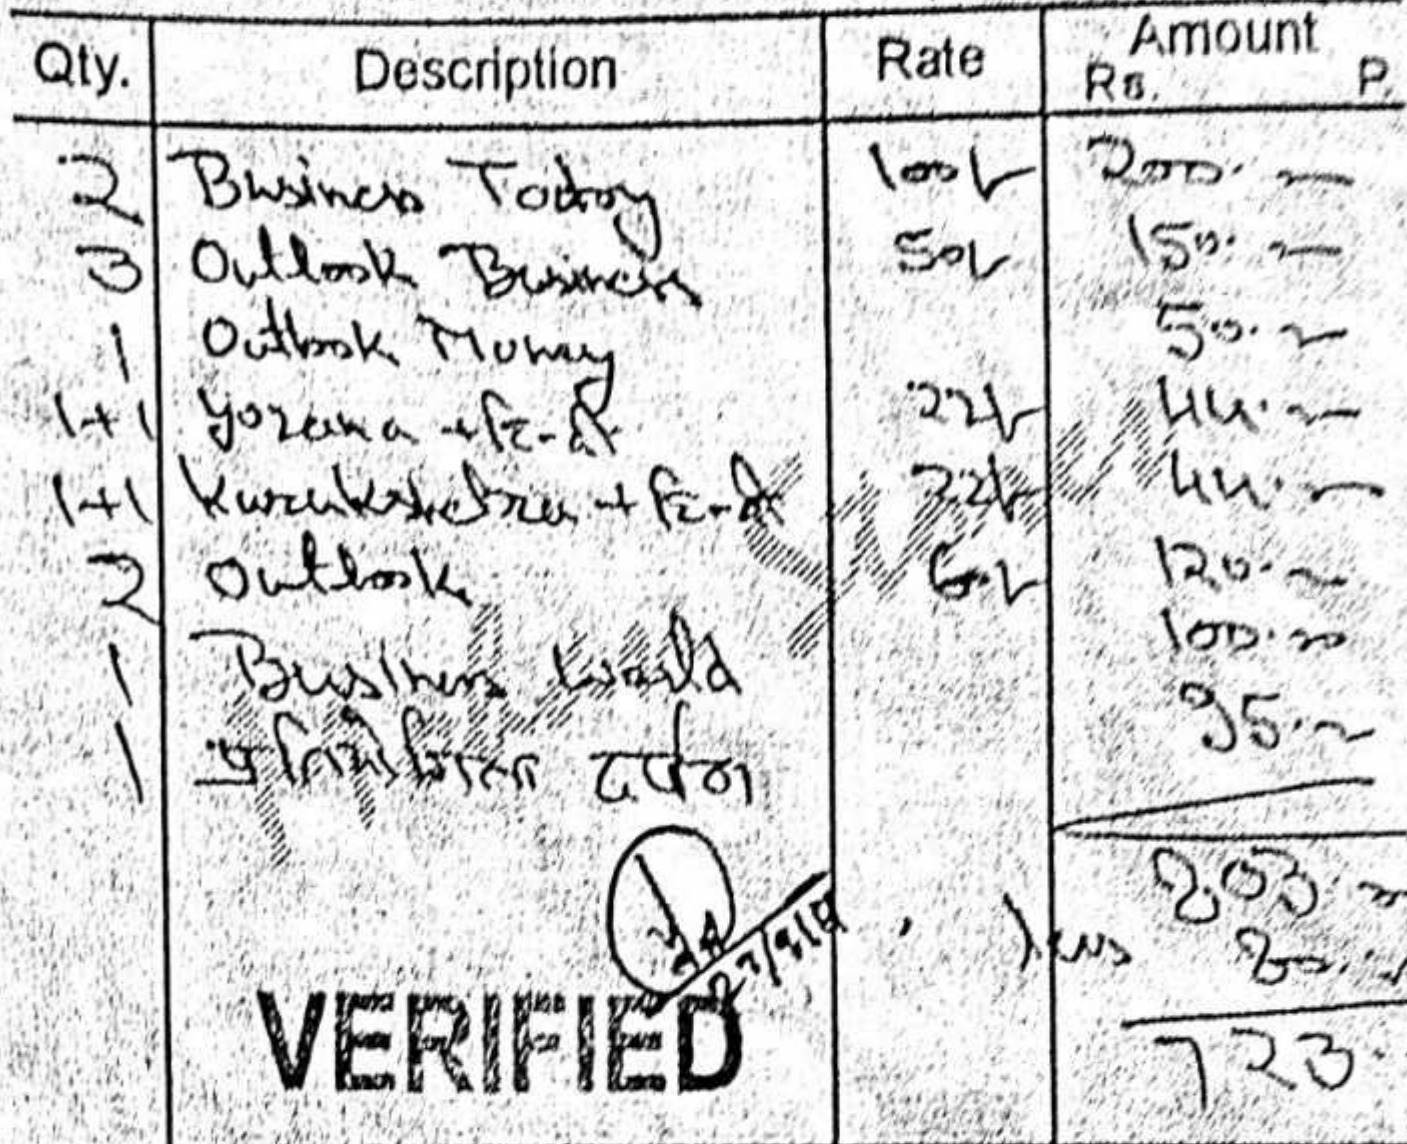 Qty. Description Rate Amount
Rs. P.
2 Business Today 100/- 200.—
3 Outlook Business 50/- 150.—
1 Outlook Money 50.—
1+1 Yozana + हिन्दी 22/- 44.—
1+1 Kurukshetra + हिन्दी 22/- 44.—
2 Outlook 60/- 120.—
1 Business World 100.—
1 प्रतियोगिता दर्पण 95.—
803
less 80.
723.
VERIFIED